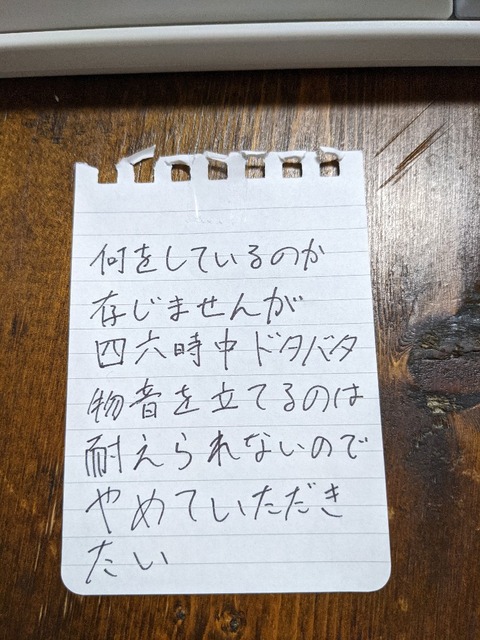 何をしているのか
存じませんが
四六時中ドタバタ
物音を立てるのは
耐えられないので
やめていただき
たい